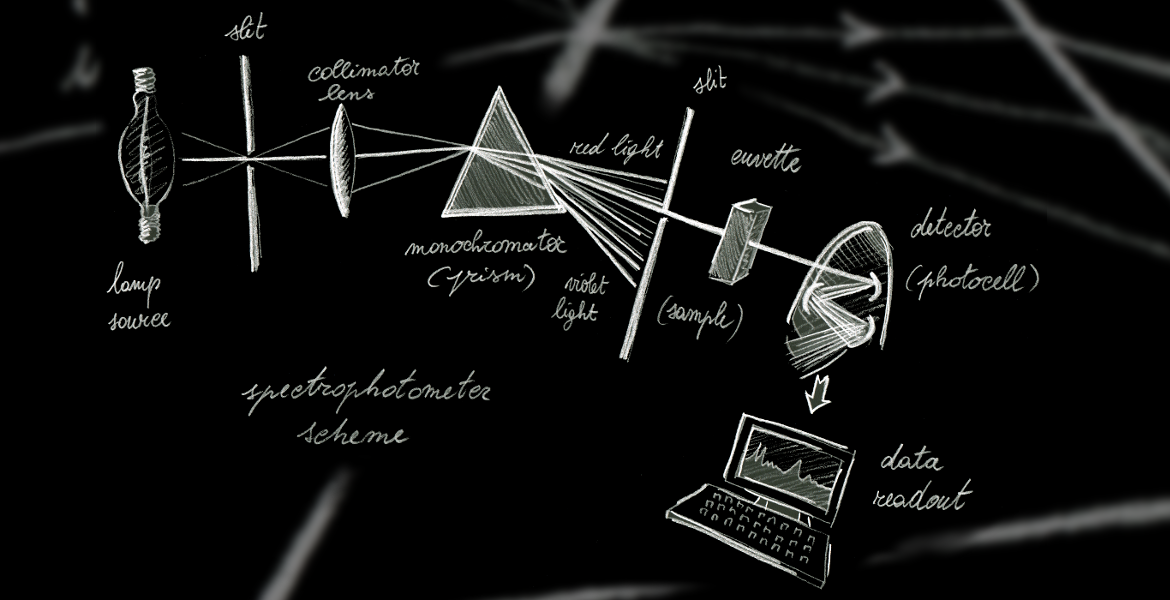 slit
collimator
lens
slit
red light
cuvette
detector
(photocell)
monochromator
(prism)
violet
light
(sample)
lamp
source
spectrophotometer
scheme
data
readout